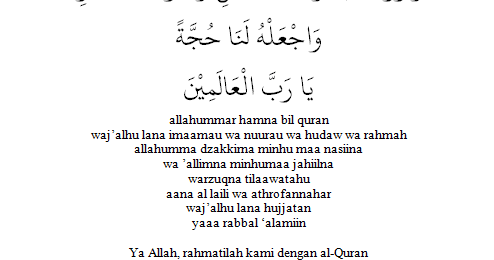 وَاجْعَلْهُ لَنَا حُجَّةً
يَا رَبَّ الْعَالَمِيْنَ
allahummar hamna bil quran
waj’alhu lana imaamau wa nuurau wa hudaw wa rahmah
allahumma dzakkirna minhu maa nasiina
wa ’allimna minhumaa jahiilna
warzuqna tilaawatahu
aana al laili wa athrofannahar
waj’alhu lana hujjatan
yaaa rabbal ‘alamiin
Ya Allah, rahmatilah kami dengan al-Quran